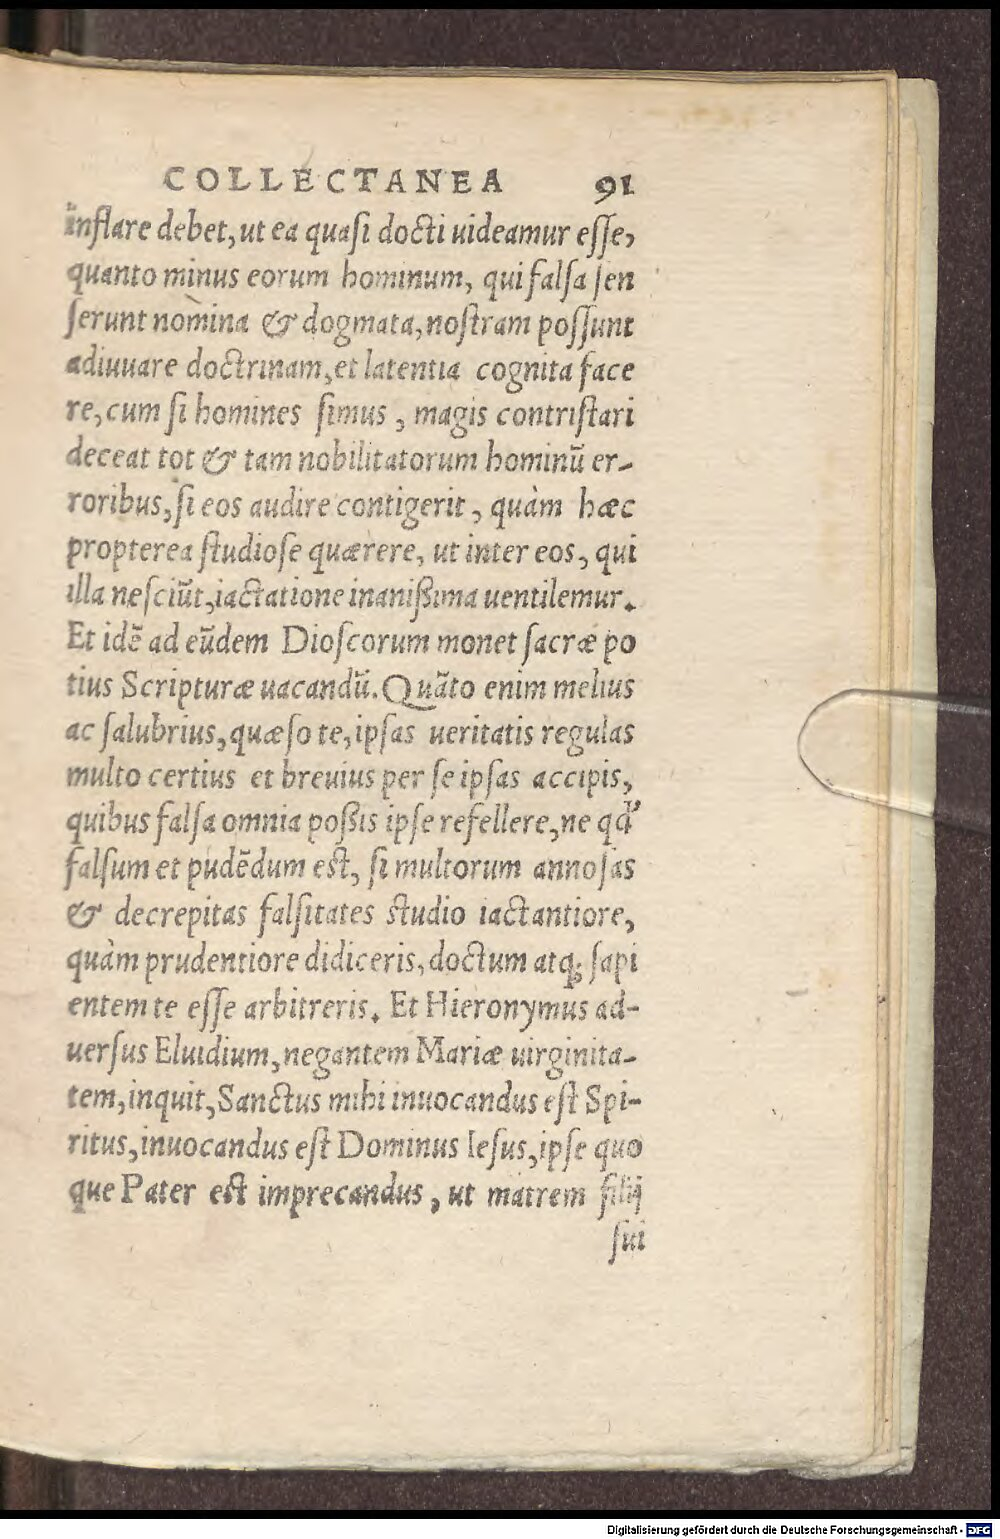 COLLECTANEA 91
inflare debet, ut ea quasi docti uideamur esse,
quanto minus eorum hominum, qui falsa sen
serunt nomina & dogmata, nostram possunt
adiuuare doctrinam, et latentia cognita face
re, cum si homines simus, magis contristari
deceat tot & tam nobilitatorum hominū er-
roribus, si eos audire contigerit, quàm hæc
propterea studiose quærere, ut inter eos, qui
illa nesciūt, iactatione inanißima uentilemur.
Et idē ad eūdem Dioscorum monet sacræ po
tius Scripturæ uacandū. Quāto enim melius
ac salubrius, quæso te, ipsas ueritatis regulas
multo certius et breuius per se ipsas accipis,
quibus falsa omnia poßis ipse refellere, ne qđ
falsum et pudēdum est, si multorum annosas
& decrepitas falsitates studio iactantiore,
quàm prudentiore didiceris, doctum atq; sapi
entem te esse arbitreris. Et Hieronymus ad-
uersus Eluidium, negantem Mariæ uirginita-
tem, inquit, Sanctus mihi inuocandus est Spi-
ritus, inuocandus est Dominus Iesus, ipse quo
que Pater est imprecandus, ut matrem filij
sui
Digitalisierung gefördert durch die Deutsche Forschungsgemeinschaft - DFG